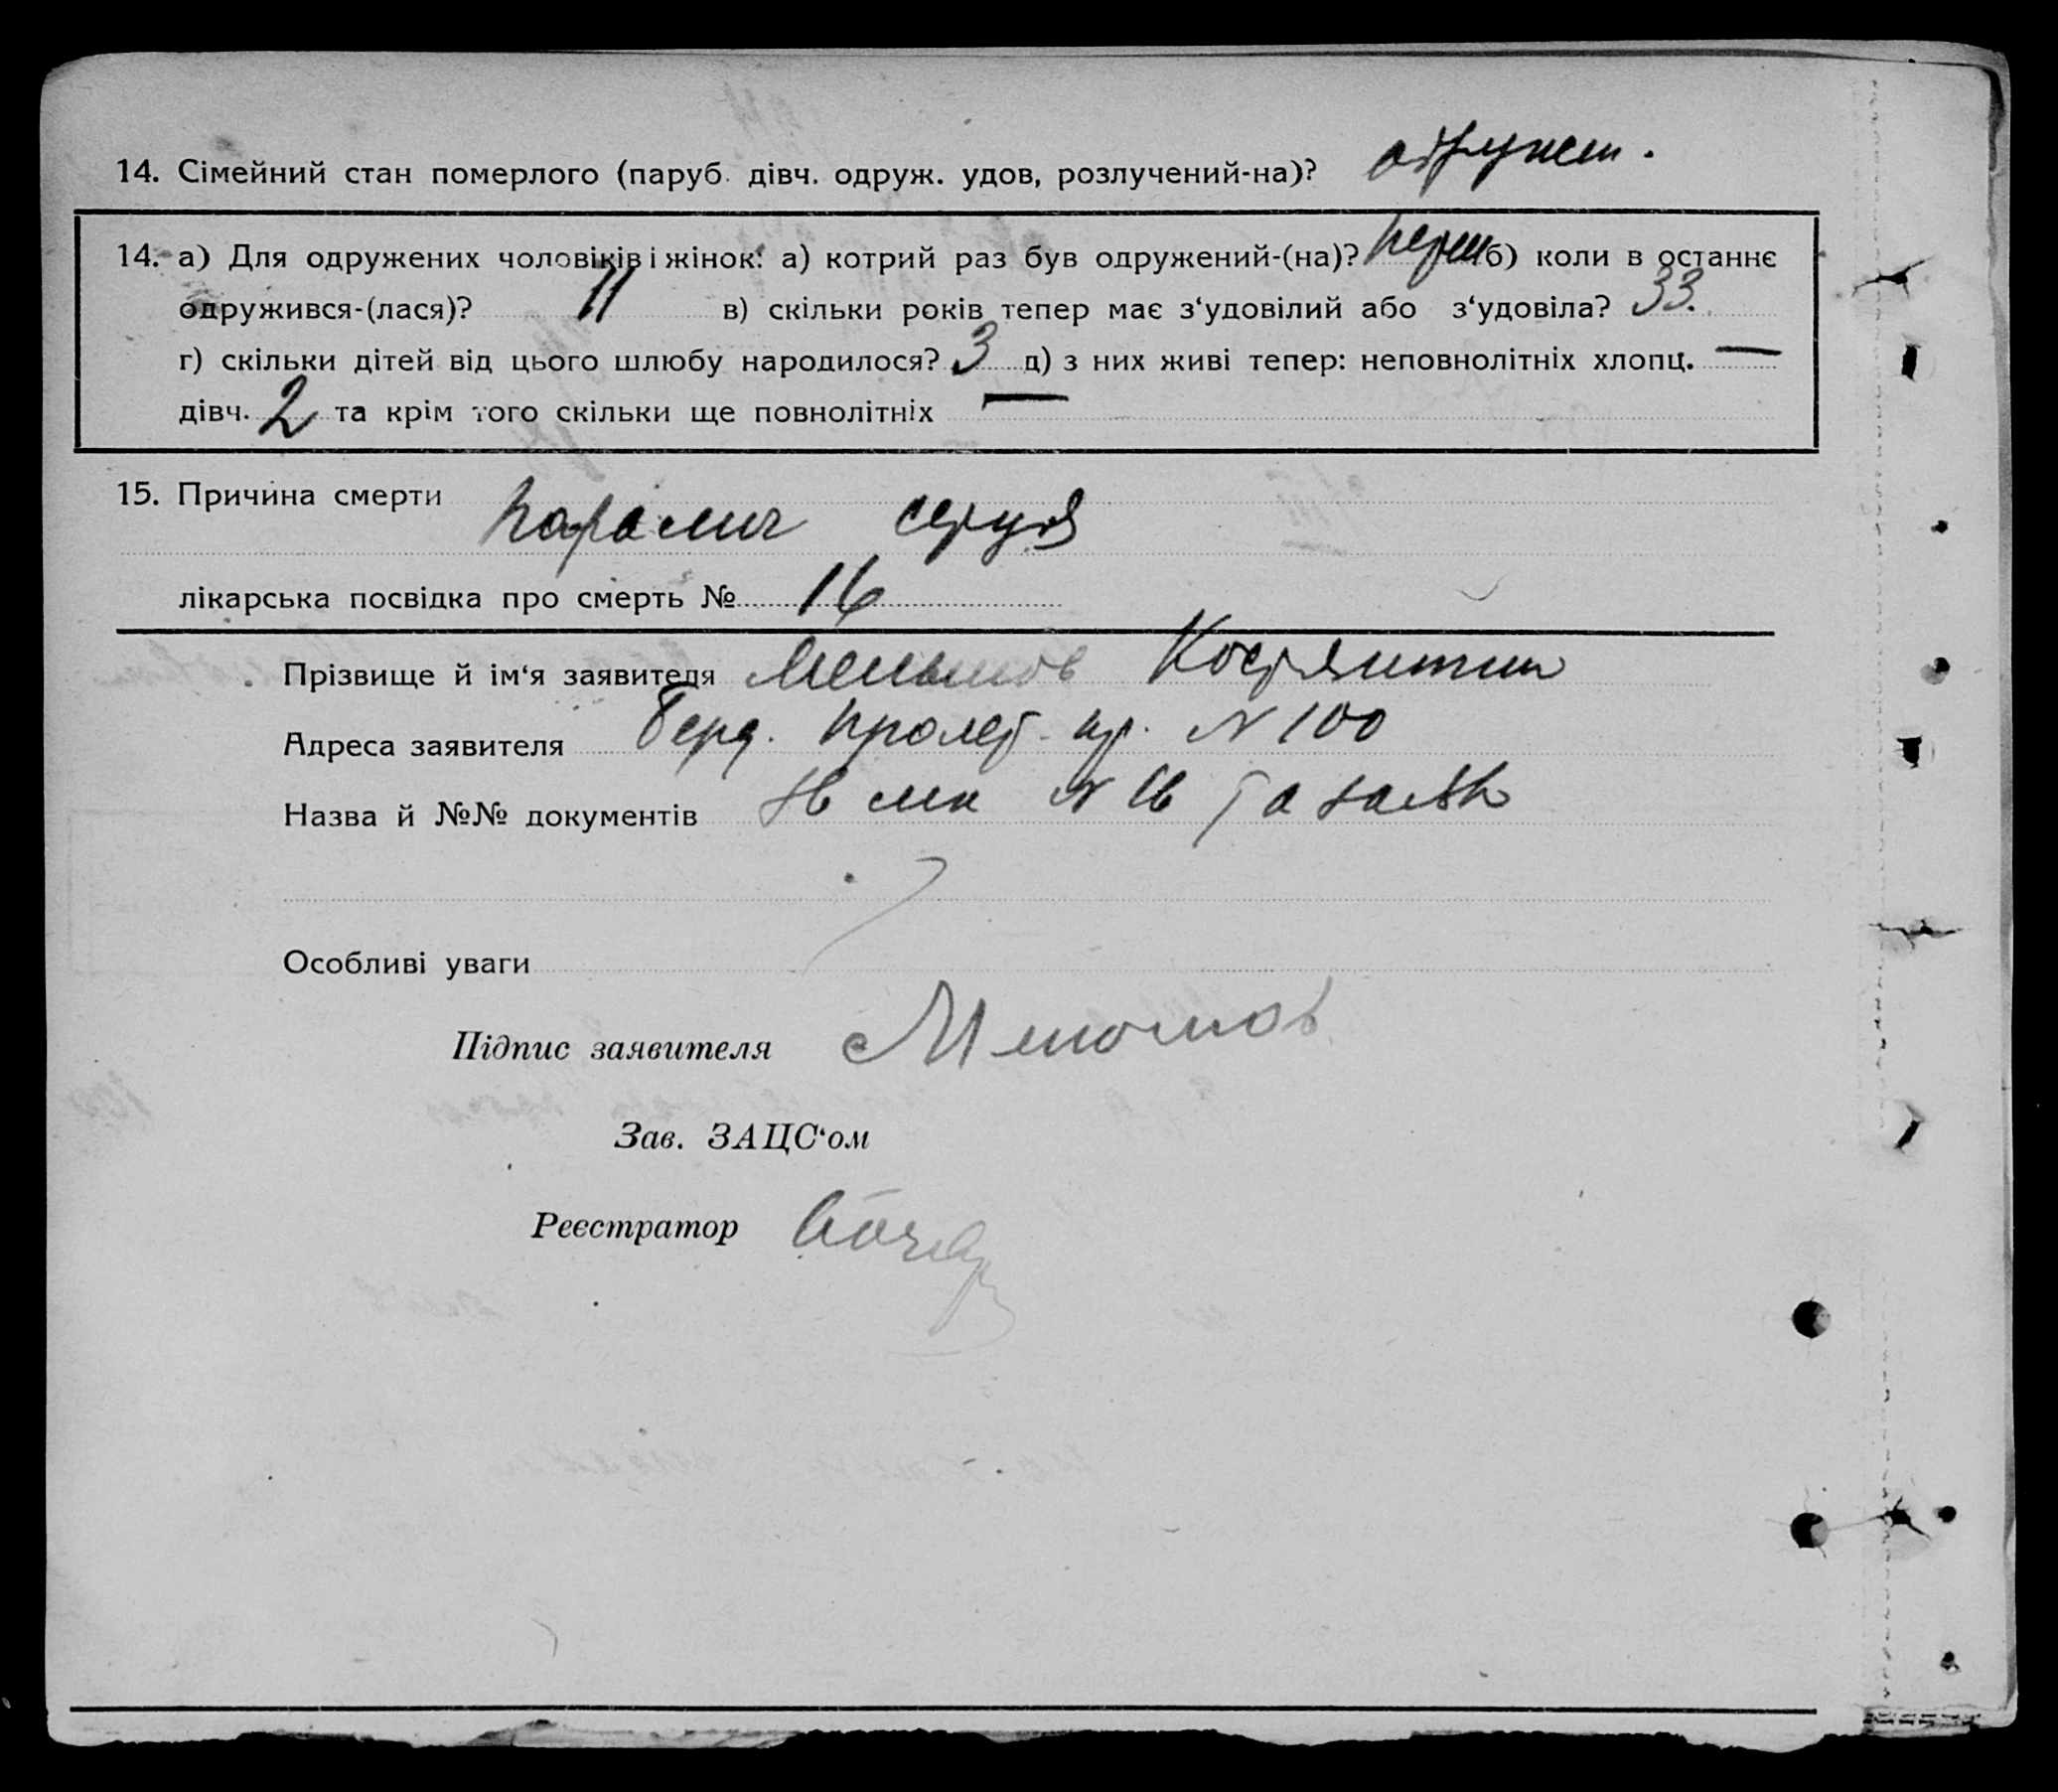 14. Сімейний стан померлого (паруб. дівч. одруж. удов, розлучений-на)? одружен.
14.-а) Для одружених чоловіків і жінок: а) котрий раз був одружений-(на)? перш б) коли в останнє
одружився-(лася)? 11 в) скільки років тепер має з‘удовілий або з‘удовіла? 33.
г) скільки дітей від цього шлюбу народилося? 3 д) з них живі тепер: неповнолітніх хлопц. —
дівч. 2 та крім того скільки ще повнолітніх —
15. Причина смерти параліч серця
лікарська посвідка про смерть № 16
Прізвище й ім‘я заявителя Костянтин
Адреса заявителя Берд. Пролет. пр. N 100
Назва й №№ документів N 16 та заяв
Особливі уваги
Підпис заявителя
Зав. ЗАЦС‘ом
Реєстратор